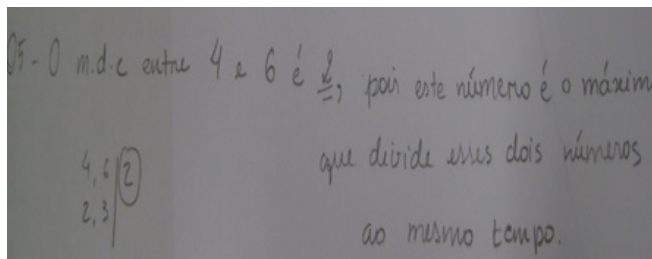 05 - O m.d.c entre 4 e 6 é 2, pois este número é o máxim
que divide esses dois números
ao mesmo tempo.
4, 6 | 2
2, 3 |